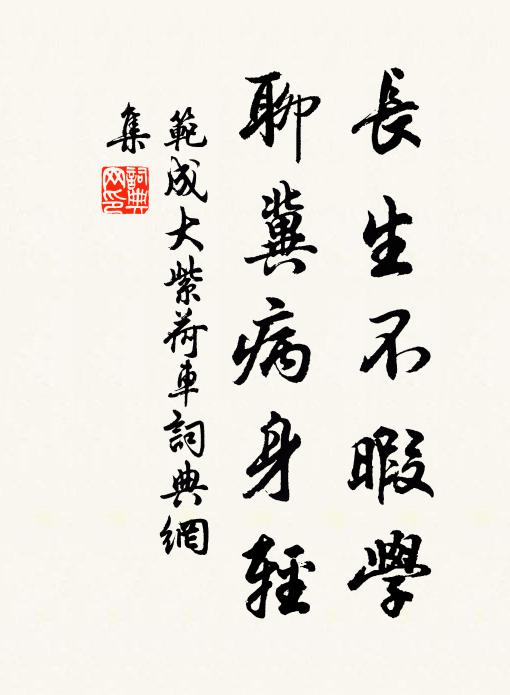 長生不暇學
聊冀病身輕
範成大紫荷車詞典網
集
詞典網印